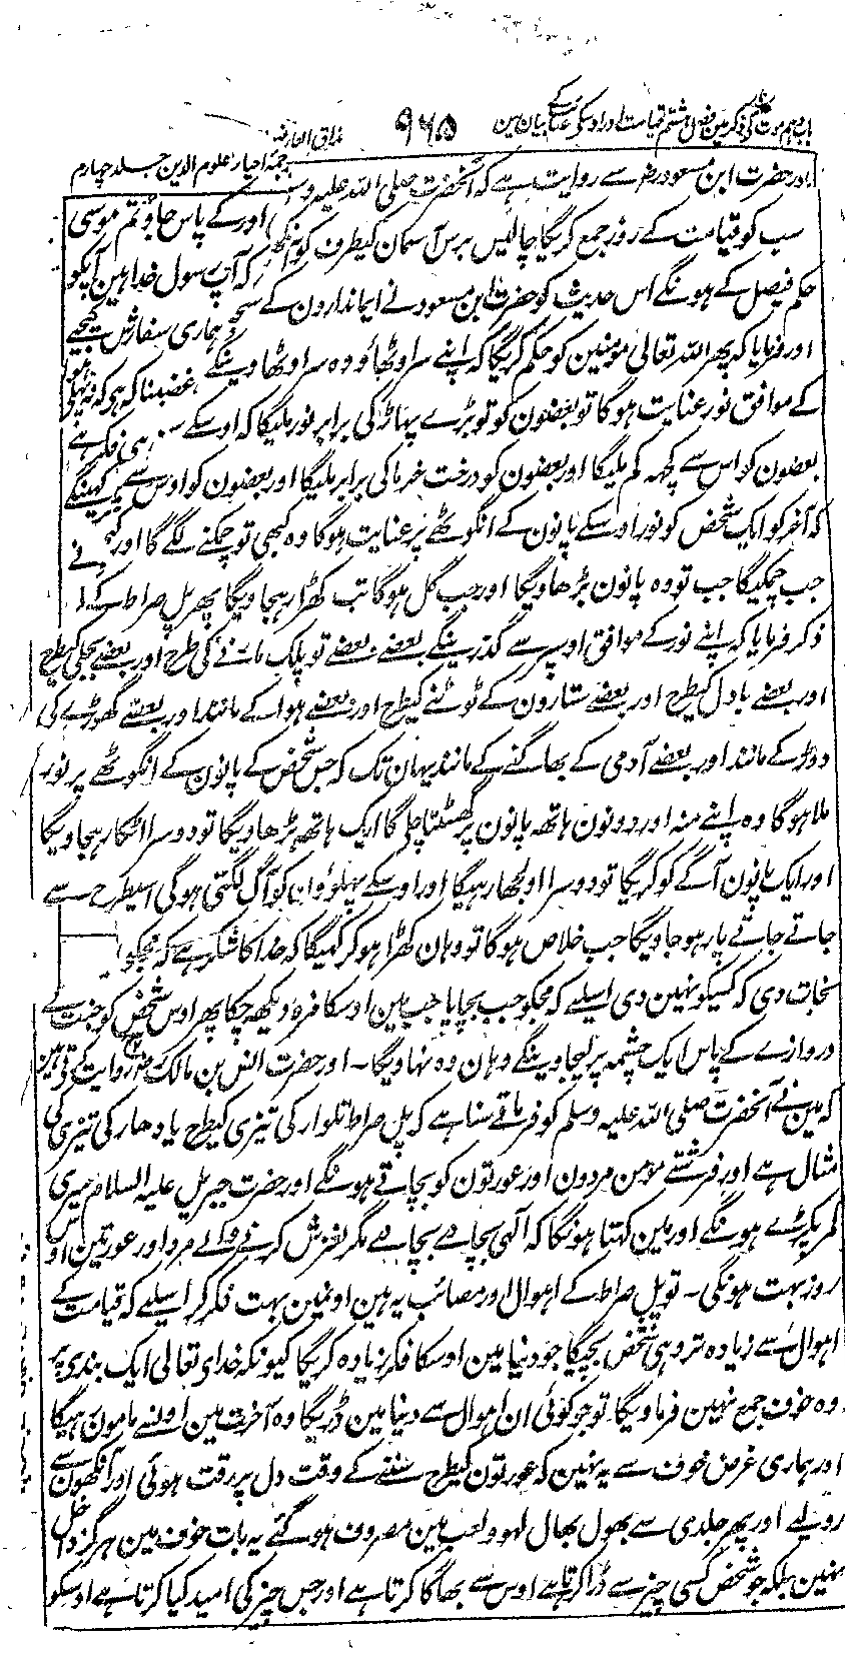 باب دہم موت کی ذکر مین فصل ہشتم قیامت اور اوسکی عذابکے بیان مین
۹۶۵
مذاق العارفین
ترجمۂ احیاء علوم الدین جلد چہارم
اور حضرت ابن مسعود رضہ سے روایت ہے کہ آنحضرت صلی اللہ علیہ وس
سب کو قیامت کے روز جمع کریگا چالیس برس آسمان کیطرف کو اور کے پاس جاؤ تم موسی
حکم فیصل کے ہونگے اس حدیث کو حضرت ابن مسعود نے ایماندارون کے سجد کہ آپ رسول خدا ہین آپکو
اور فرمایا کہ پھر اللہ تعالی مومنین کو حکم کریگا کہ اپنے سر اوٹھاؤ وہ سر اوٹھاوینگے ہماری سفارش کیجیے
کے موافق نور عنایت ہوگا تو بعضون کو تو بڑے پہاڑ کی برابر نور ملیگا کہ اوسکے غضبناک ہو کہ نہ
بعضون کو اس سے کچھہ کم ملیگا اور بعضون کو درخت خرما کی برابر ملیگا اور بعضون کو اوس سے ہی فکر ہے
کہ آخر کو ایک شخص کو نور اوسکے پانون کے انگوٹھے پر عنایت ہوگا وہ کبھی تو چمکنے لگے گا اور کہینگے
جب چمکیگا جب تو وہ پانون بڑھاویگا اور جب گل ہوگا تب کھڑا رہجاویگا پھر پل صراط کے
ذکر فرمایا کہ اپنے نور کے موافق اوسپر سے گذرینگے بعضے تو پلک مارنے کی طرح اور بعضے بجلی کیطرح
اور بعضے بادل کیطرح اور بعضے ستارون کے ٹوٹنے کیطرح اور بعضے ہوا کے مانند اور بعضے گھوڑے کی
دوڑ کے مانند اور بعضے آدمی کے بھاگنے کے مانند یہان تک کہ جس شخص کے پانون کے انگوٹھے پر نور
ملا ہوگا وہ اپنے منہ اور دونون ہاتھ پانون پر گھسٹتا چلے گا ایک ہاتھ بڑھاویگا تو دوسرا اٹکا رہجاویگا
اور ایک پانون آگے کو کریگا تو دوسرا اولجھا رہیگا اور اوسکے پہلوؤن کو آگ لگتی ہوگی اسیطرح سے
جاتے جاتے پار ہوجاویگا جب خلاص ہوگا تو وہان کھڑا ہو کر کہیگا کہ خدا کا شکر ہے کہ مجکو
نجات دی کہ کسیکو نہین دی اسلیے کہ مجکو جب بچایا جب مین اوسکا مزہ دیکھہ چکا پھر اوس شخص کو جنت کے
دروازے کے پاس ایک چشمہ پر لیجاوینگے وہان وہ نہاویگا۔ اور حضرت انس بن مالک رضہ روایت کرتے ہین
کہ مین نے آنحضرت صلی اللہ علیہ وسلم کو فرماتے سنا ہے کہ پل صراط تلوار کی تیزی کیطرح یا دھار کی تیزی کی
مثال ہے اور فرشتے مومن مردون اور عورتون کو بچاتے ہونگے اور حضرت جبریل علیہ السلام میری
کمر پکڑے ہونگے اور مین کہتا ہونگا کہ الہی بچا دے بچا دے مگر لغزش کرنے والے مرد اور عورتین اوس
روز بہت ہونگی۔ تو پل صراط کے اہوال اور مصائب یہ ہین اونمین بہت فکر کر اسلیے کہ قیامت کے
اہوال سے زیادہ تر وہی شخص بچیگا جو دنیا مین اوسکا فکر زیادہ کریگا کیونکہ خدای تعالی ایک بندی پر
دو خوف جمع نہین فرماویگا تو جو کوئی ان اہوال سے دنیا مین ڈریگا وہ آخرت مین اونسے مامون رہیگا
اور ہماری غرض خوف سے یہ نہین کہ عورتون کیطرح سننے کے وقت دل پر رقت ہوئی اور آنکھون سے
رو لیے اور پھر جلدی سے بھول بھال لہو ولعب مین مصروف ہوگئے یہ بات خوف مین ہرگز داخل
نہین بلکہ جو شخص کسی چیز سے ڈرا کرتا ہے اوس سے بھاگا کرتا ہے اور جس چیز کی امید کیا کرتا ہے اوسکو